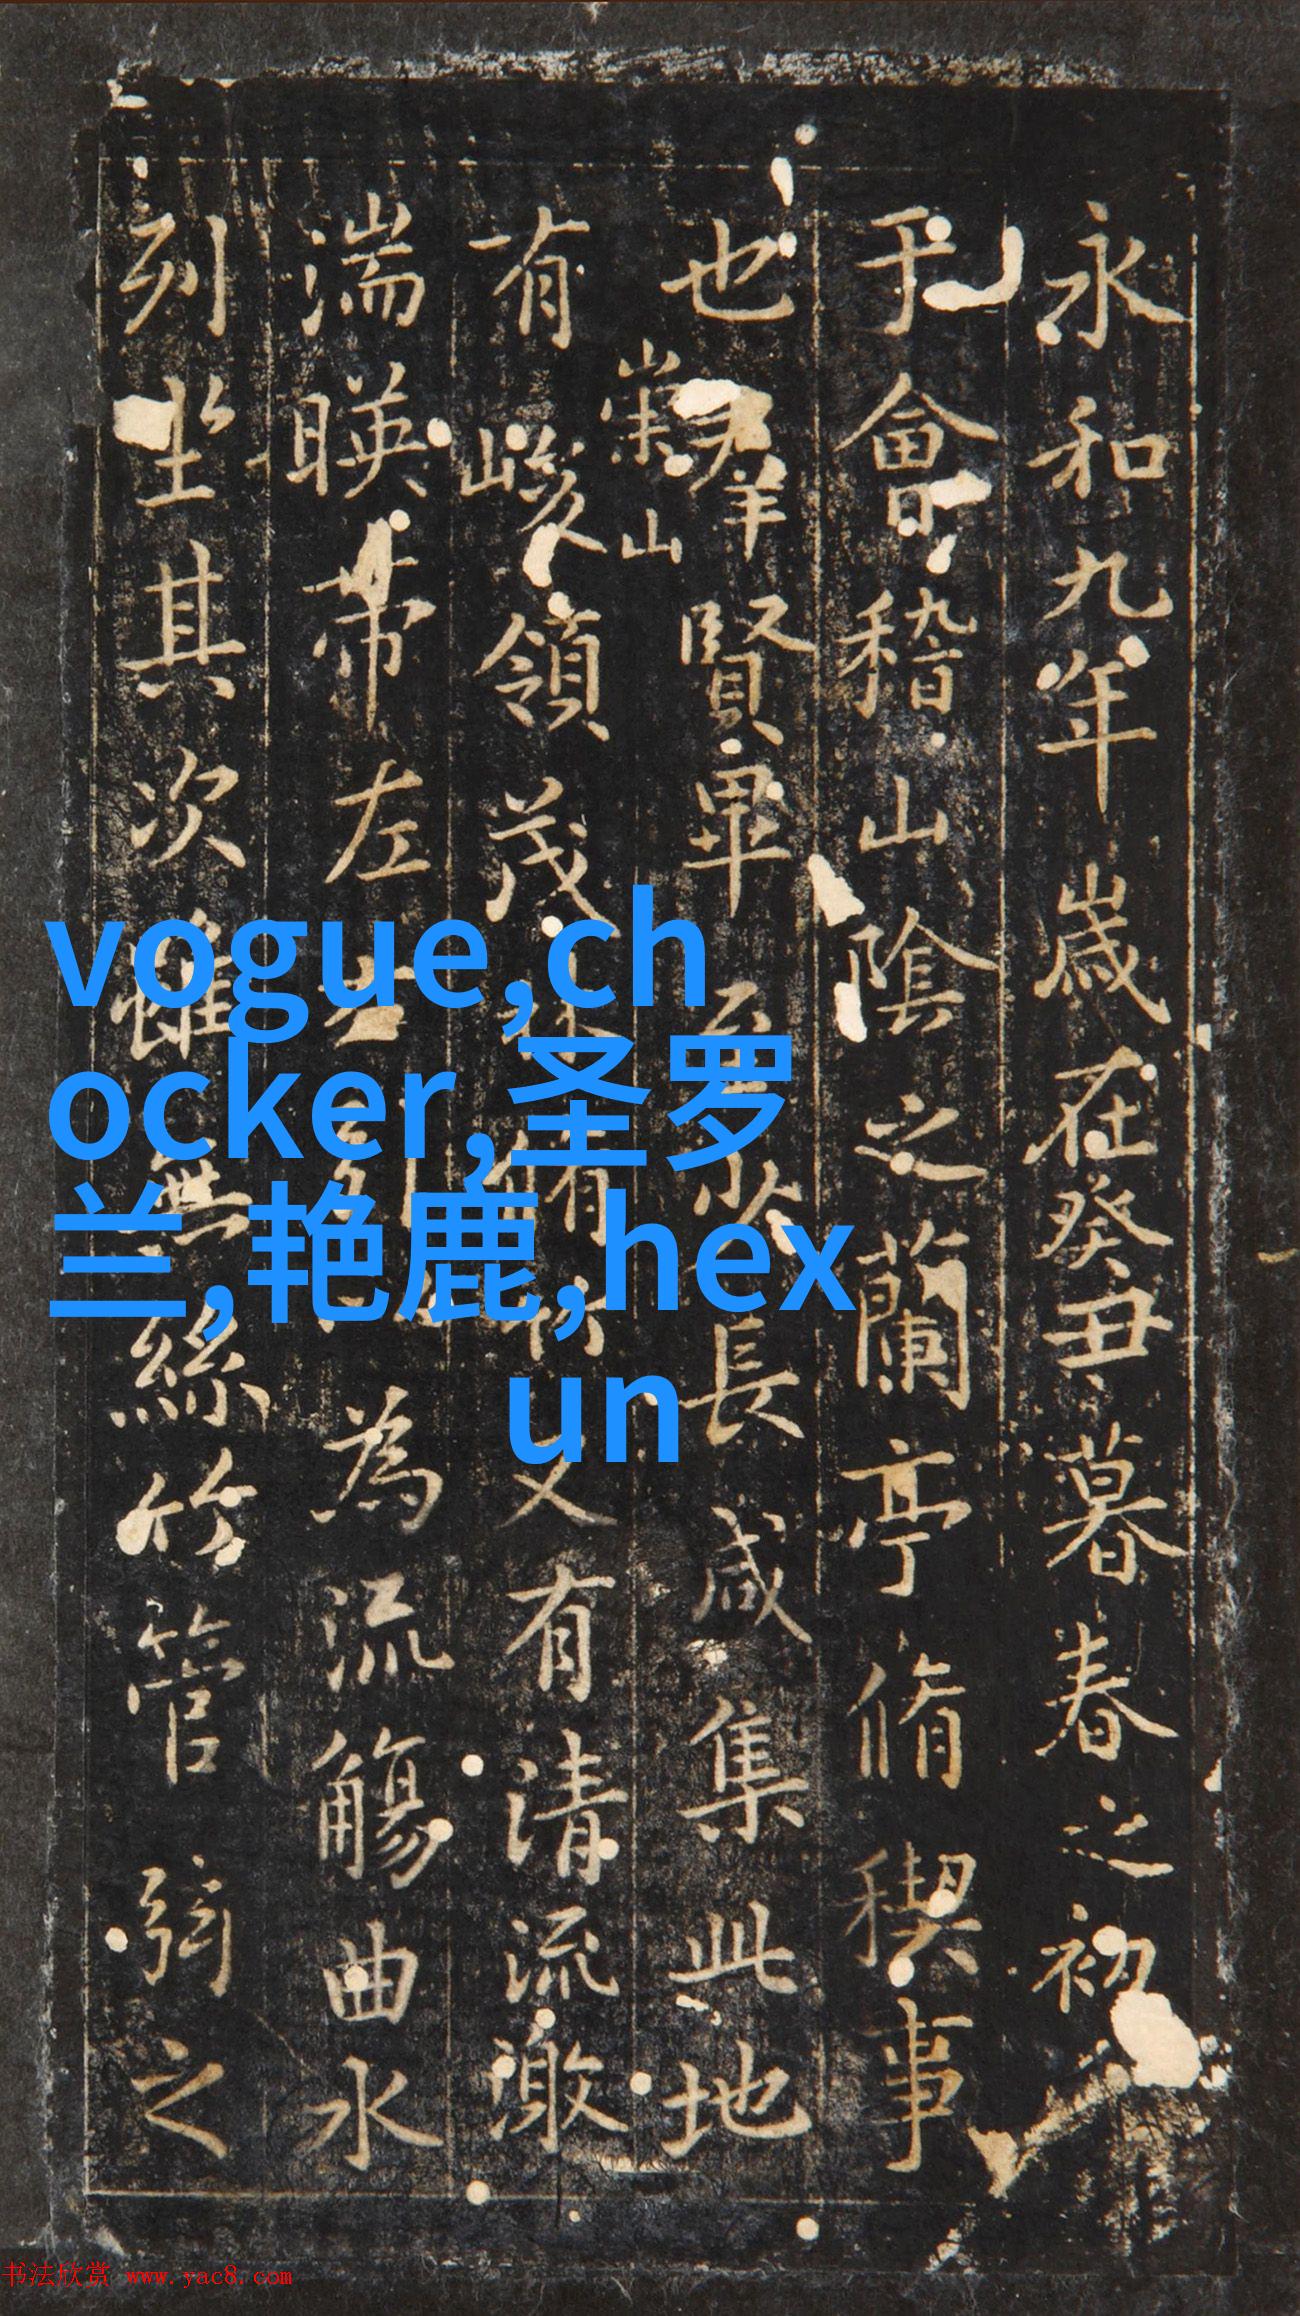 永和九年歲在癸丑暮春之初
于會稽山陰之蘭亭脩稧事
也羣賢畢至少長咸集此地
崇山
有峻領茂林脩竹又有清流激
湍暎帶左右引以為流觴曲水
列坐其次雖無絲竹管弦之
vogue,ch
ocker,圣罗
兰,艳鹿,hex
un
书法欣赏 www.yac8.com